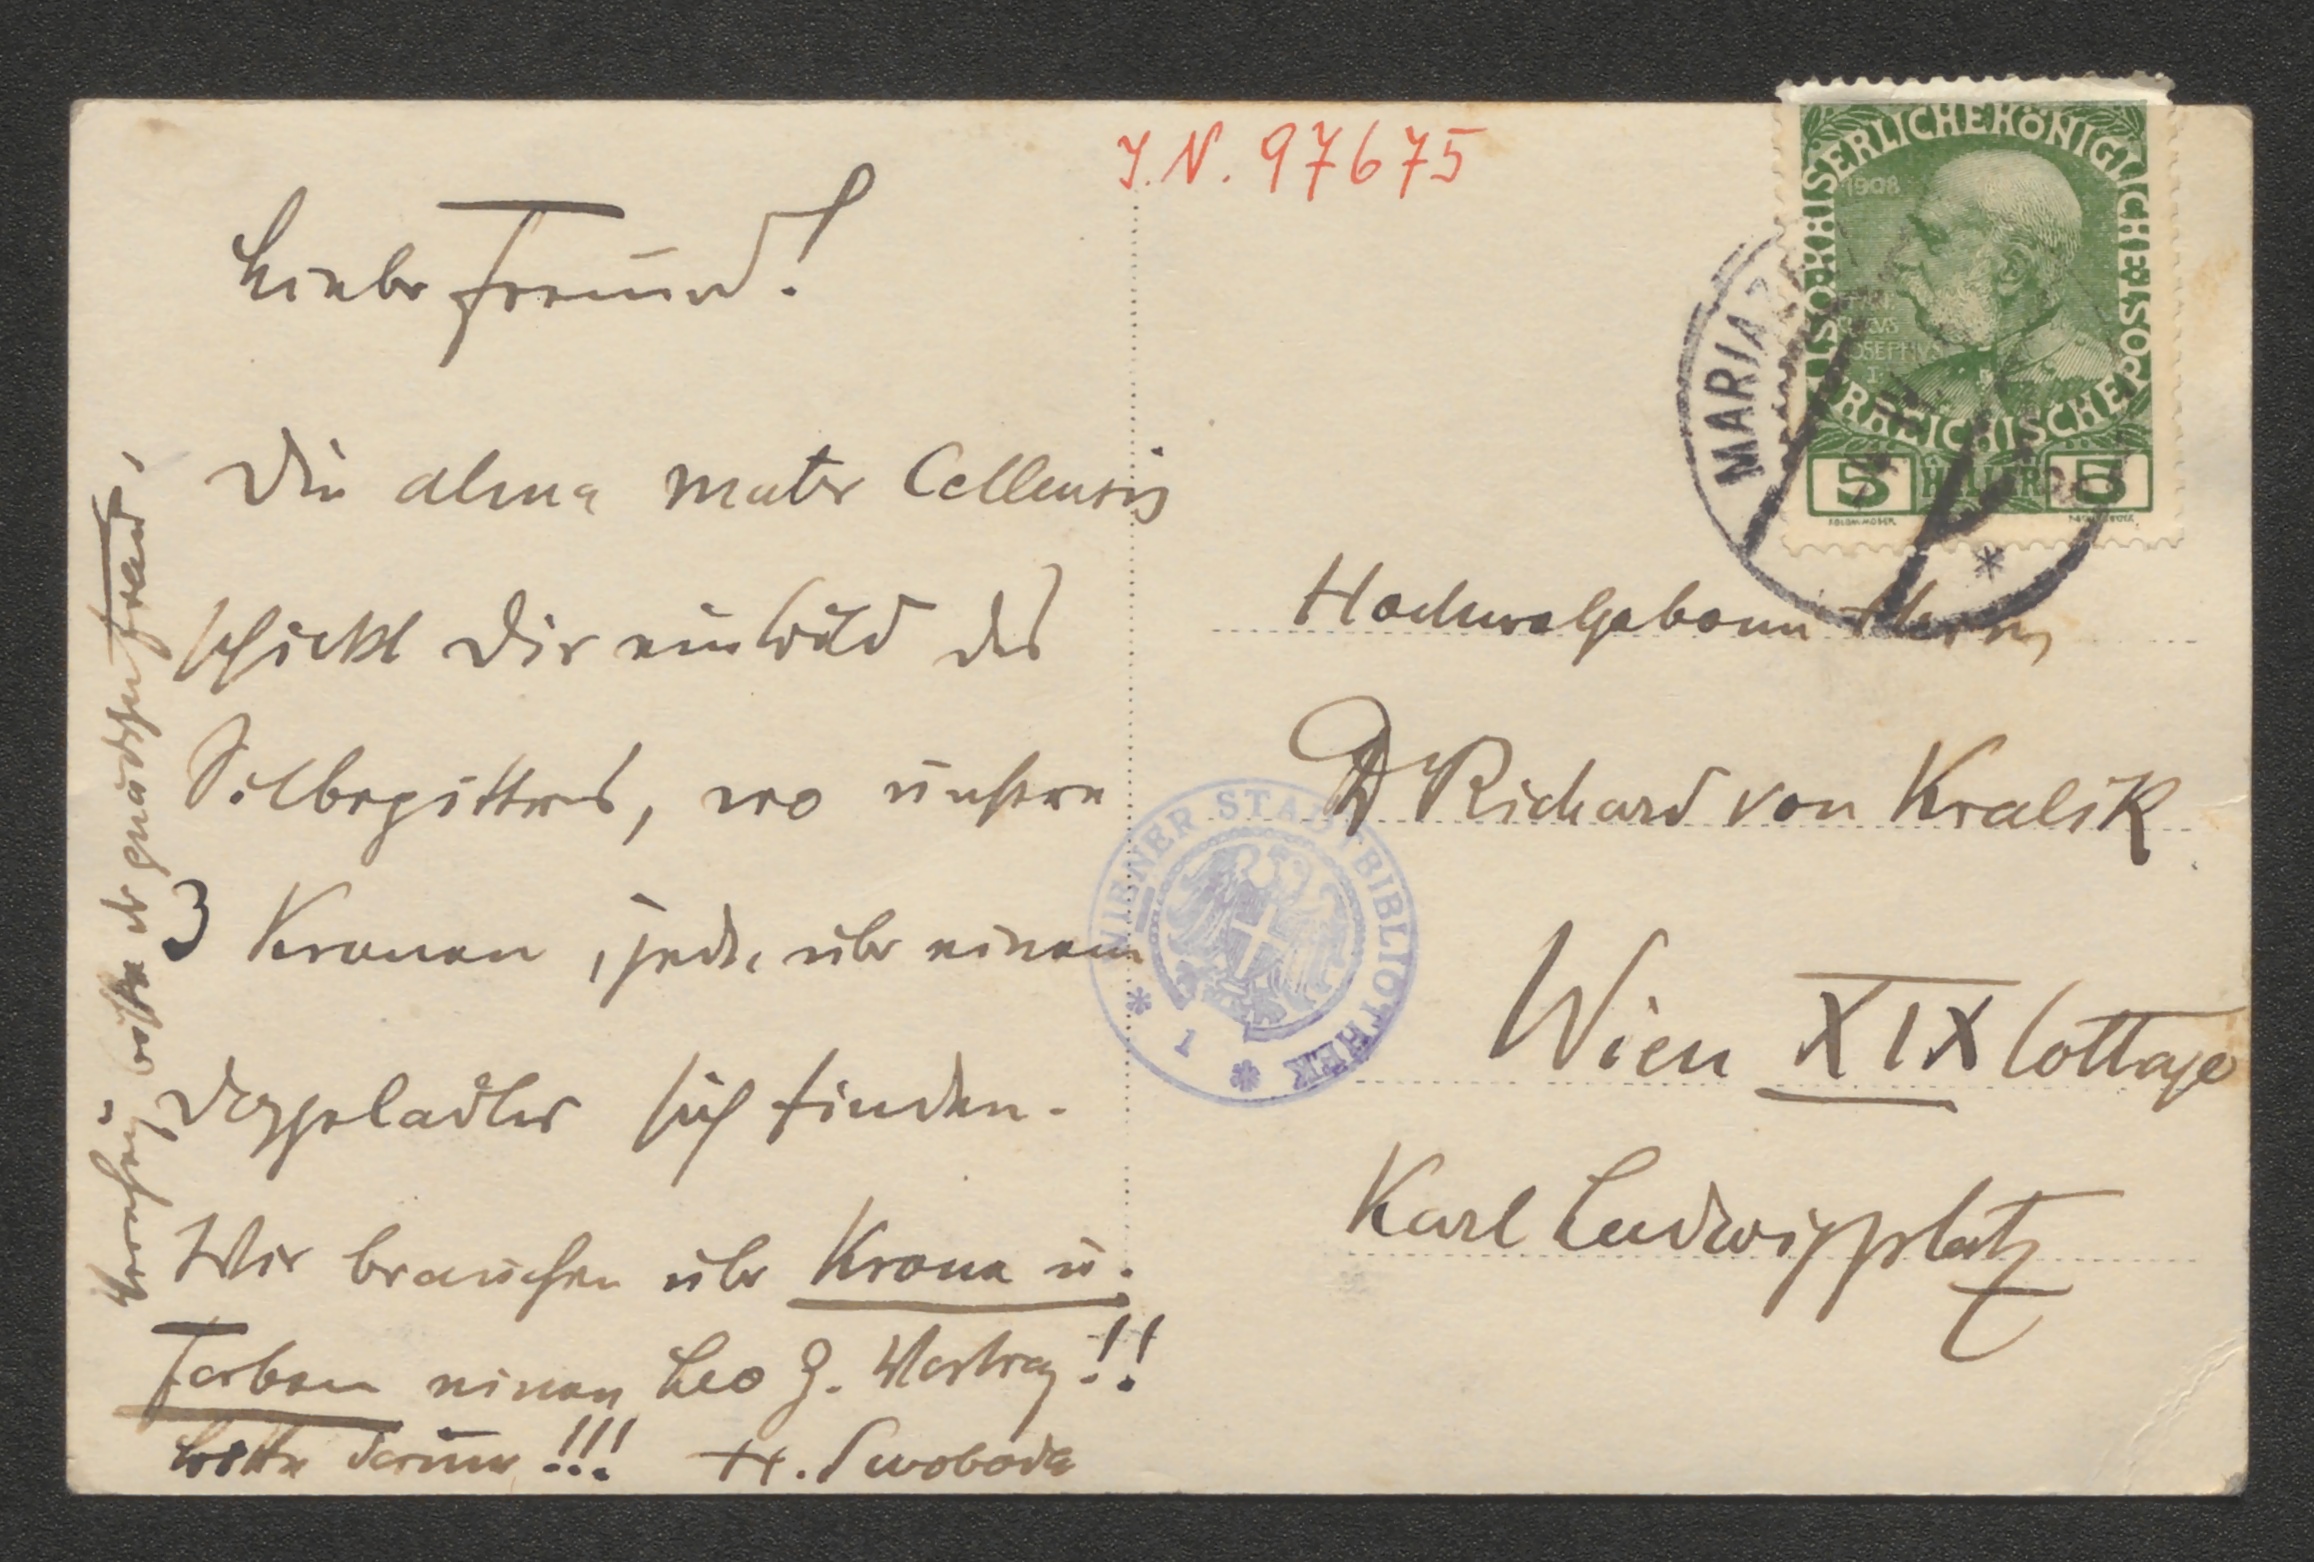 J. N. 97675
Lieber Freund!
Die alma mater Cellensis
schickt Dir ein Bild des
Silbergitters, wo unsere
3 Kronen, jede über einem
Doppeladler sich finden.
Wir brauchen über Krone u.
Farben einen Leo G. Vortrag!!
bitte darum!!! H. Swoboda
Verehrung bitte der gnädigen Frau,
KAISERLICHE KÖNIGLICHE POST
ÖSTERREICHISCHE
1908
JOSEPHVS
5 HELLER 5
MARIAZ
Hochwolgebornen Herrn
Dr Richard von Kralik
Wien XIX Cottage
Karl Ludwigplatz
WIENER STADTBIBLIOTHEK
* 1 *